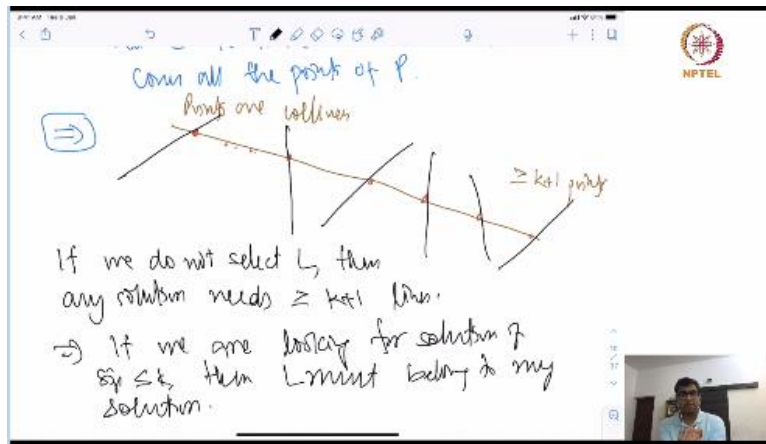 Cover all the points of P.
Points are collinear
⇒
≥ k+1 points
If we do not select L, then
any solution needs ≥ k+1 lines.
⇒ If we are looking for solution of
size ≤ k, then L must belong to my
solution.
NPTEL